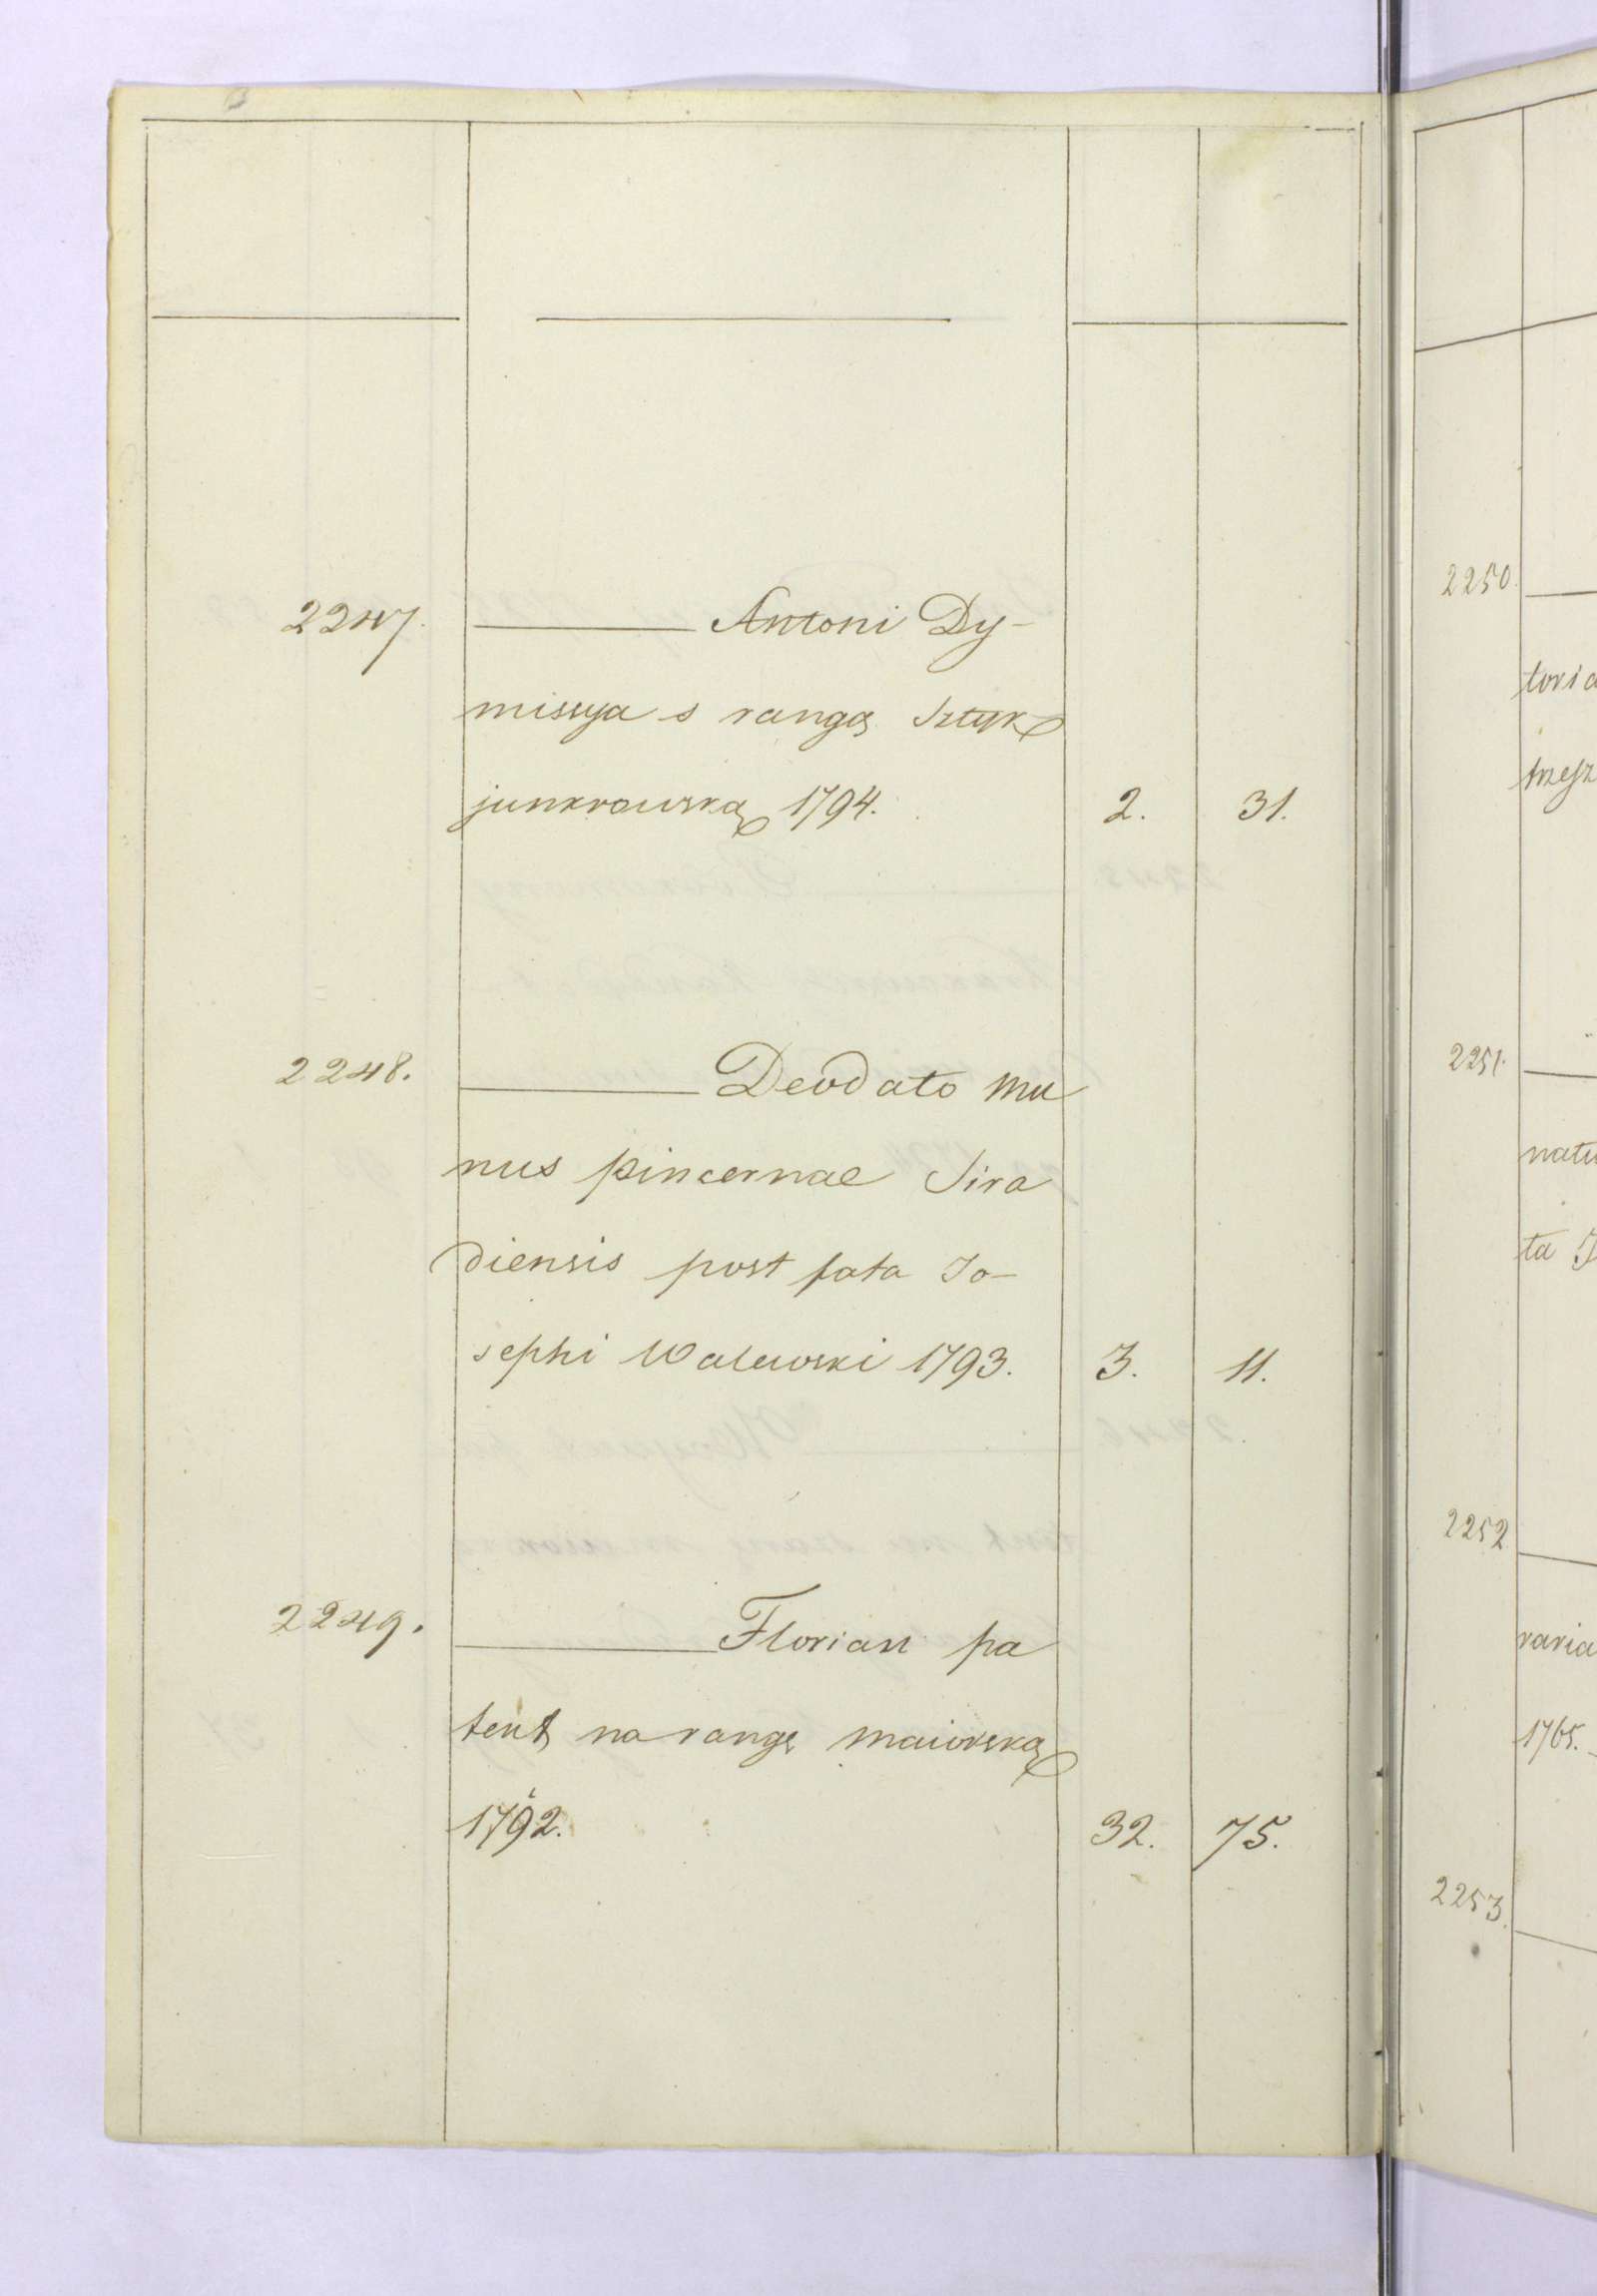 2247. ——— Antoni Dy-
missya s rangą Sztyk
junkrowską 1794. 2. 31.
2248. ——— Deodato mu
nus pincernae Sira
diensis post fata Jo-
sephi Walewski 1793. 3. 11.
2249. ——— Florian pa
tent na rangę maiorską
1792. 32. 75.
2250.
toria
2251.
natu
ta
2252
raria
1765.
2253.